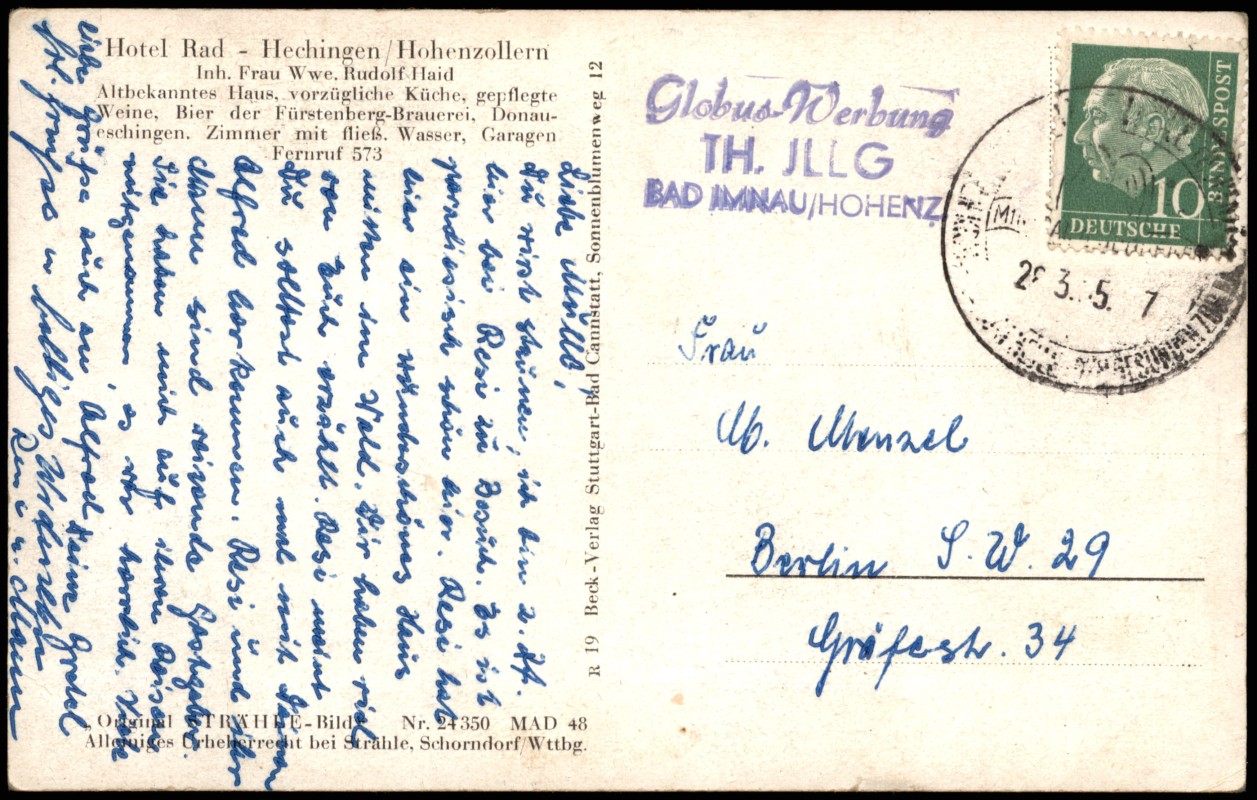 Hotel Rad - Hechingen/Hohenzollern
Inh. Frau Wwe. Rudolf Haid
Altbekanntes Haus, vorzügliche Küche, gepflegte
Weine, Bier der Fürstenberg-Brauerei, Donau-
eschingen. Zimmer mit fließ. Wasser, Garagen
Fernruf 573
Liebe
Du wirst staunen, ich bin z. Zt.
hier bei Resi zu Besuch. Es ist
paradiesisch schön hier. Resi hat
hier ein wunderschönes Haus
mitten im Wald. Wir haben viel
von Euch erzählt. Resi meint
Du solltest auch mal mit Deinem
Alfred herkommen. Resi und ihr
Mann sind reizende Gastgeber.
Sie haben mich auf ihren Reisen
mitgenommen, es war herrlich. Viele
liebe Grüße auch an Alfred Deine Gretel
Hrl. Grüße u. baldiges Wiedersehn
Resi u. Mann
„Original STRÄHLE-Bild“ Nr. 24350 MAD 48
Alleiniges Urheberrecht bei Strähle, Schorndorf/Wttbg.
R 19 Beck-Verlag Stuttgart-Bad Cannstatt, Sonnenblumenweg 12
Globus-Werbung
TH. JLLG
BAD IMNAU/HOHENZ.
DEUTSCHE
BUNDESPOST
10
3. 5. 7
Frau
M. Menzel
Berlin S. W. 29
Gräfestr. 34